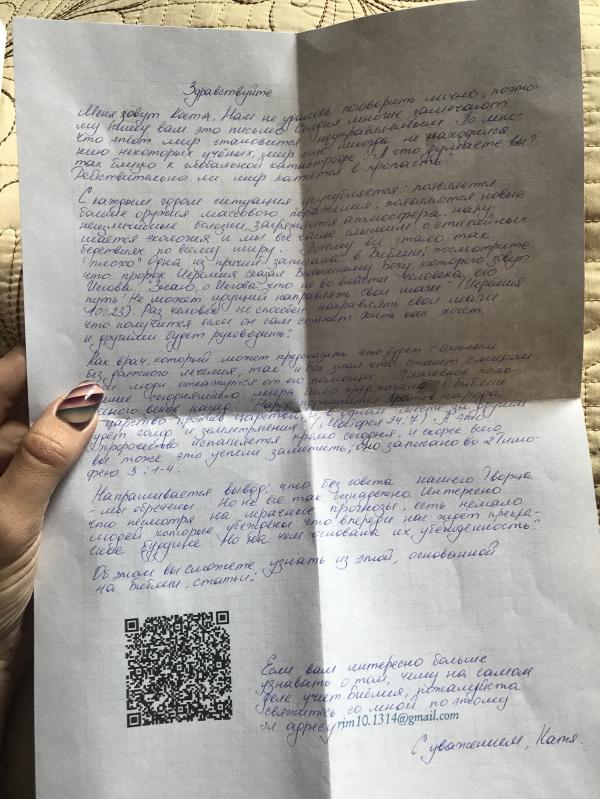 Здравствуйте
Меня зовут Катя. Нам не удалось поговорить лично, поэто-
му пишу вам это письмо. Сегодня многие замечают
что этот мир становится неуправляемым. По мне-
нию некоторых учёных мир ещё никогда не находился
так близко к глобальной катастрофе. А что думаете вы?
Действительно ли мир катится в пропасть?
С каждым годом ситуация усугубляется: появляется
больше оружия массового поражения, появляются новые
неизлечимые болезни, загрязняется атмосфера, нару-
шается экология и мы всё чаще слышим о стихийных
бедствиях по всему миру. Почему всё стало так
плохо? Одна из причин записана в Библии, посмотрите
что пророк Иеремия сказал Всевышнему Богу, которого зовут
Иегова: "Знаю, о Иегова, что не во власти человека его
путь! Не может идущий направлять свои шаги" (Иеремия
10:23). Раз человек не способен направлять свои шаги,
что получится если он сам станет жить как хочет
и другими будет руководить?
Как врач, который может предсказать что будет с больным
без должного лечения, так и Бог знал что станет с миром
если люди откажутся от его помощи. Плачевное поло-
жение сегодняшнего мира было предсказано в Библии
много веков назад: "Народ поднимется против народа,
царство против царства и в одном месте за другим
будет голод и землетрясения" (Матфея 24:7). А это
пророчество исполняется прямо сегодня, и скорее всего
вы тоже это успели заметить, оно записано во 2 Тимо-
фею 3:1-4.
Напрашивается вывод: что без совета нашего Творца
- мы обречены. Но не всё так безнадёжно. Интересно
что несмотря на мрачные прогнозы, есть немало
людей которые убеждены что впереди нас ждёт прекра-
сное будущее. Но на чём основана их убежденность?
Об этом вы сможете узнать из этой, основанной
на Библии, статьи:
Если вам интересно больше
узнавать о том, чему на самом
деле учит Библия, пожалуйста
свяжитесь со мной по этому
эл. адресу rjm10.1314@gmail.com
С уважением, Катя.